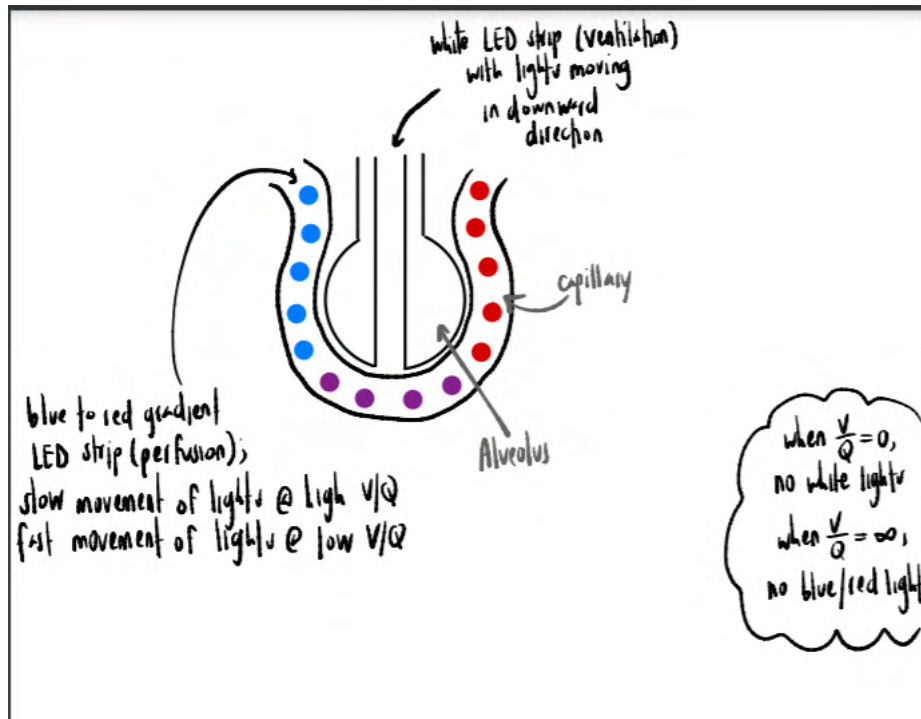 white LED strip (ventilation)
with lights moving
in downward
direction
capillary
Alveolus
blue to red gradient
LED strip (perfusion);
slow movement of lights @ high V/Q
fast movement of lights @ low V/Q
when V/Q = 0,
no white lights
when V/Q = ∞,
no blue/red light